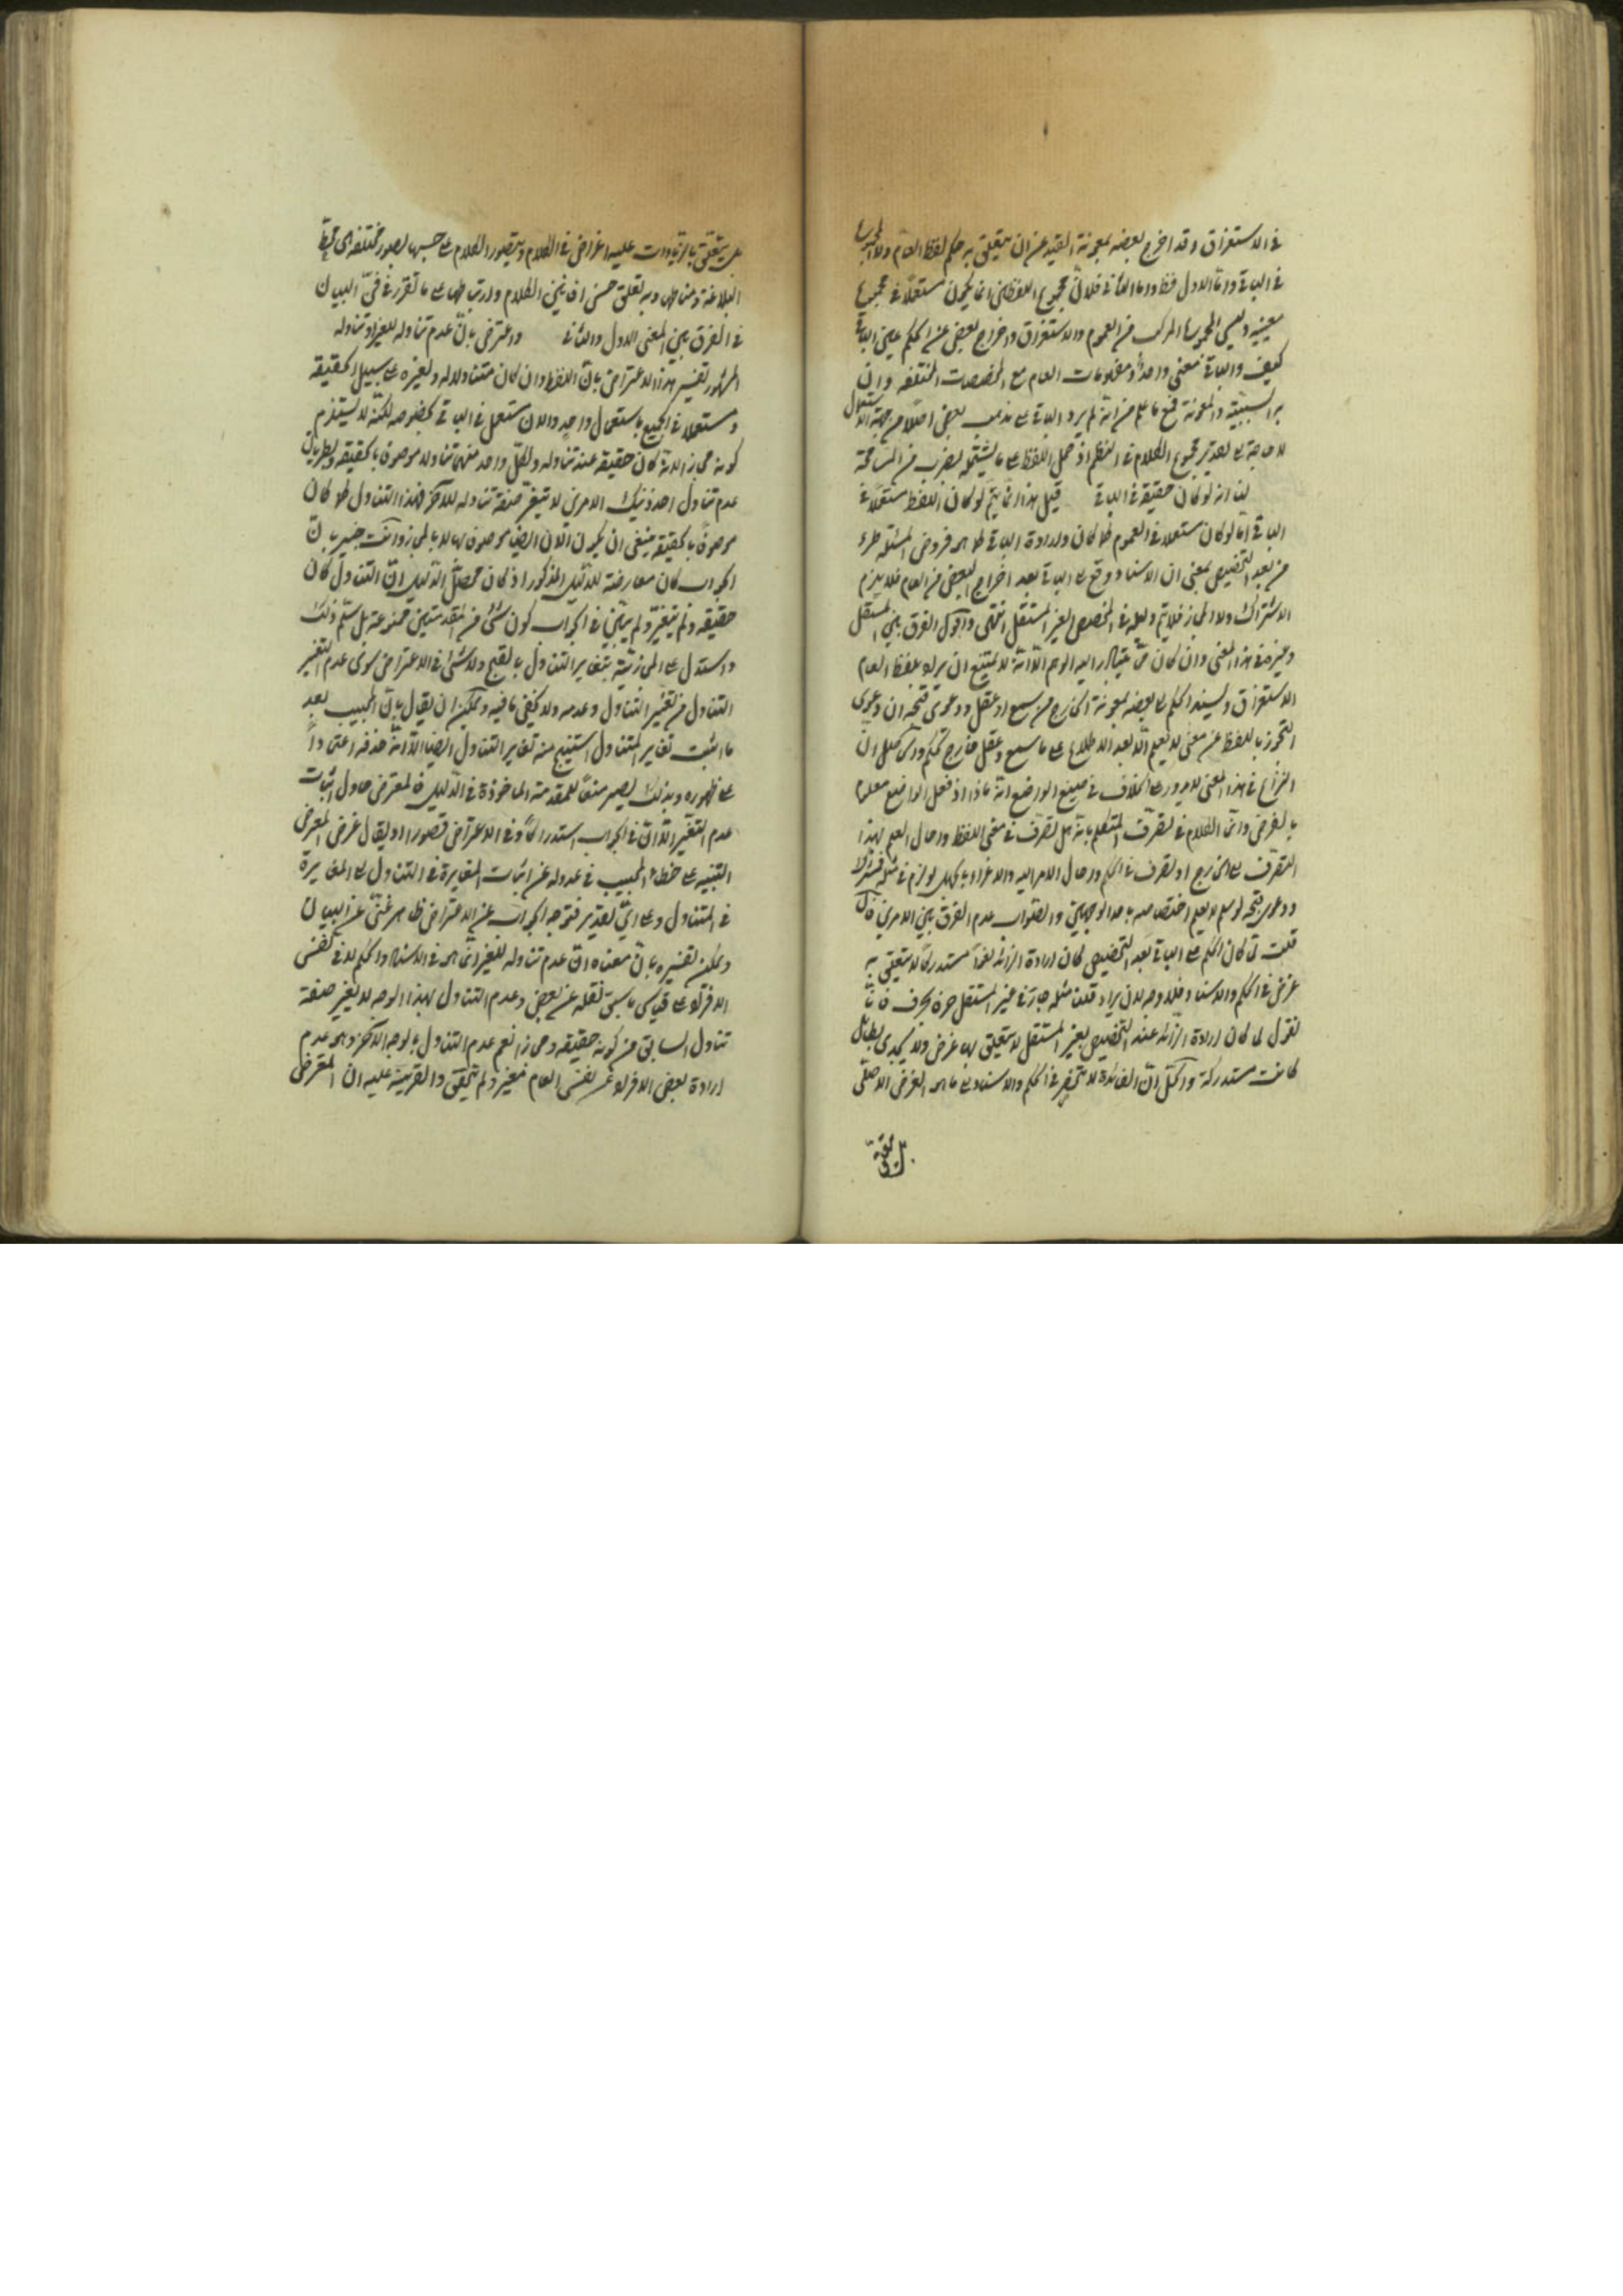 في الاستغراق وقد اخرج بعضه بمعونة القيد عن ان يتعلق به حكم لفظ العام ولا المجموع
في الباقي واما الاول فظ واما الثاني فلان مجموع اللفظين انما يكون مستعملا في مجموع
معنييه وليس المجموع المركب من العموم والاستغراق واخراج البعض عن الحكم عين الباقي
كيف والباقي معنى واحد ومفهومات العام مع المخصصات المختلفة وان
السببية والمعونة فمع ما علم من انه لم يرد الباقي على مذهب بعض اصلا من جهة الاستعمال
لا حاجة على تقدير مجموع الكلام في النظم اذ حمل اللفظ على ما يشتمله بضرب من المسامحة
لنا انه لو كان حقيقة في الباقي قيل هذا انما يتم لو كان اللفظ مستعملا في
الباقي اما لو كان مستعملا في العموم كما كان وارادة الباقي كما هو فروض المسئلة طرء
من بعد التخصيص بمعنى ان الاسناد وقع على الباقي بعد اخراج البعض من العام فلا يلزم
الاشتراك ولا المجاز فلا يتم دليله في المخصص الغير المستقل انتهى واقول الفرق بين المستقل
وغيره في هذا المعنى وان كان مما يتبادر اليه الوهم الا انه لا يمتنع ان يراد بلفظ العام
الاستغراق ويسند الحكم على بعضه بمعونة الخارج من سمع او عقل ودعوى فتجه ان دعوى
التجوز باللفظ عن معنى لا يعلم الا بعد الاطلاع على ما سمع وعقل خارج تحكم
النزاع في هذا المعنى لا يدور على الخلاف في صنيع الواضع انه ماذا اذ فعل الواضع معلوم
بالفرض وانما الكلام في تصرف المتكلم بانه هل تصرف في معنى اللفظ واحال العلم بهذا
التصرف على الخارج او تصرف في الحكم واحال الامر اليه والاغراء بالجهل لو لزم في مثله فمشترك
ودعوى لو سلم لا يعلم اختصاصه باحد الوجهين والصواب عدم الفرق بين الامرين فان
قلت لما كان الحكم على الباقي بعد التخصيص كان ارادة الزائد لغوا مستدركا لا يتعلق به
غرض في الحكم والاسناد فلا وجه لان يراد قلت مثله جار في غير المستقل حرفا بحرف فانا
نقول لما كان ارادة الزائد عند التخصيص بغير المستقل لا يتعلق بها غرض ولا يجدي بطائل
كانت مستدركة والحل ان الفائدة لا تنحصر في الحكم والاسناد على ما هو الغرض الاصلي
بل يتعلق بالزيادات عليه اغراض في الكلام ويتصور الكلام على حسبها بصور مختلفة
البلاغة ومنها وبه تعلق حسن افانين الكلام وارتباطها على ما تقرر في فن البيان
في الفرق بين المعنى الاول والثاني واعترض بان عدم تناوله للغير او تناوله
المشهور تفسير هذا الاعتراض بان اللفظ وان كان متناولا له ولغيره على سبيل الحقيقة
ومستعملا في الجميع باستعمال واحد والآن مستعمل في الباقي بخصوصه لكنه لا يستلزم
كونه مجازا لانه كان حقيقة عند تناوله ولكل واحد منهما تناول موصوف بالحقيقة وبطريان
عدم تناول احد ذينك الامرين لا يتغير صفة تناوله للآخر فهذا التناول لما كان
موصوفا بالحقيقة ينبغي ان يكون الآن ايضا موصوفا بها لا بالمجاز وانت خبير بان
الجواب كان معارضة للدليل المذكور اذ كان محصل الدليل ان التناول كان
حقيقة ولم يتغير ولم يبين في الجواب كون شئ من المقدمتين ممنوعة بل سلم ذلك
واستدل على المجازية بتغاير التناول بالقبح ولا شئ في الاعتراض سوى عدم التغير
التناول من تغير التناول وعدمه ولا يخفى ما فيه ويمكن ان يقال بان المجيب بعد
ما اثبت تغاير المتناول استنتج منه تغاير التناول ايضا الا انه حذفه اعتمادا
على ظهوره وبذلك يصير منعا للمقدمة الماخوذة في الدليل فالمعترض حاول اثبات
عدم التغير الا ان في الجواب استدراكا وفي الاعتراض قصورا او يقال غرض المعترض
التنبيه على خطاء المجيب في عدوله عن اثبات المغايرة في التناول على المغايرة
في المتناول وعلى اي تقدير فتوجه الجواب عن الاعتراض ظاهر غني عن البيان
ويمكن تفسيره بان معناه ان عدم تناوله للغير انما هو في الاسناد والحكم لا في نفس
الافراد على قياس ما سبق نقله عن بعض وعدم التناول بهذا الوجه لا يغير صفة
تناول السابق من كونه حقيقة ومجازا نعم عدم التناول بالوجه الآخر وهو عدم
ارادة بعض الافراد عن نفس العام مغير ولم يتحقق والقرينة عليه ان المعترض